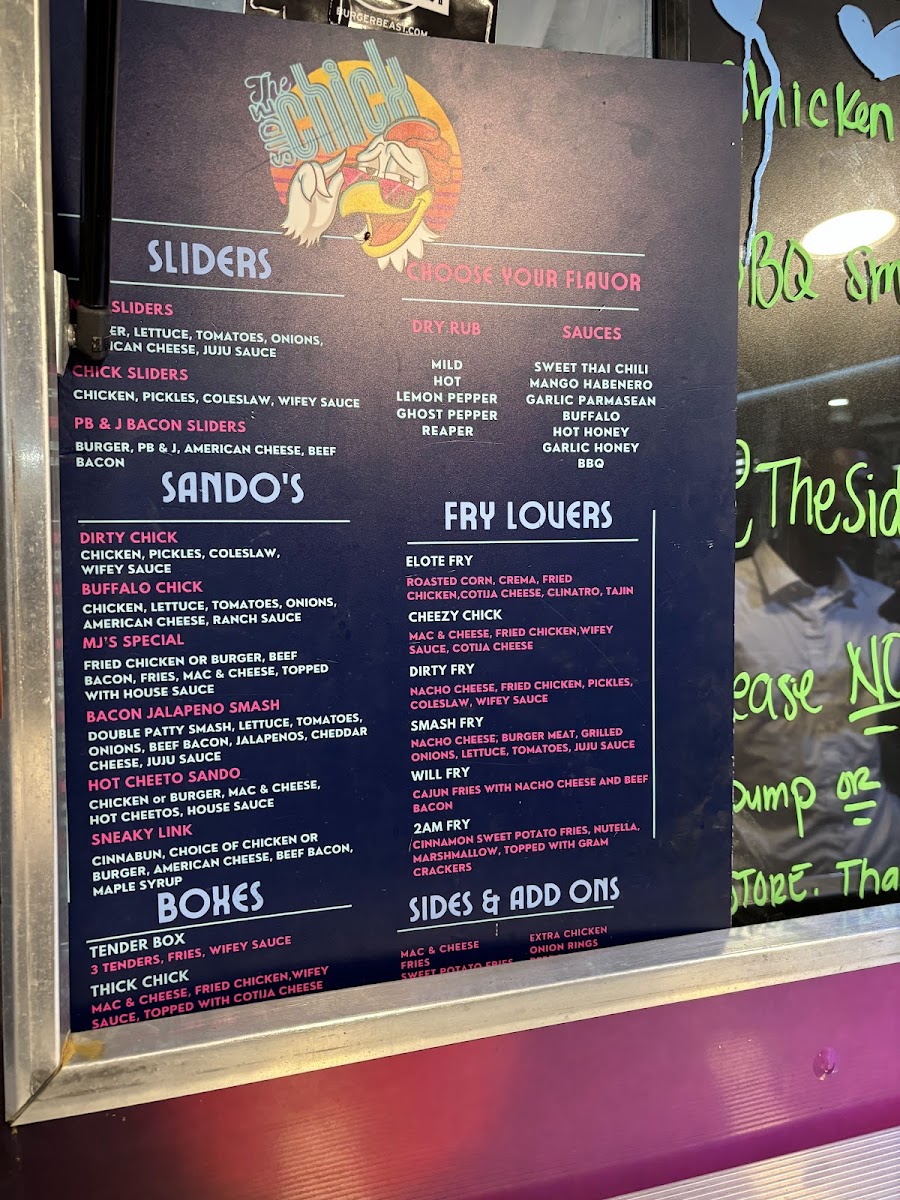 BURGERBEAST.COM
The
Side
chick
SLIDERS
SLIDERS
LETTUCE, TOMATOES, ONIONS,
CHEESE, JUJU SAUCE
CHICK SLIDERS
CHICKEN, PICKLES, COLESLAW, WIFEY SAUCE
PB & J BACON SLIDERS
BURGER, PB & J, AMERICAN CHEESE, BEEF
BACON
SANDO'S
DIRTY CHICK
CHICKEN, PICKLES, COLESLAW,
WIFEY SAUCE
BUFFALO CHICK
CHICKEN, LETTUCE, TOMATOES, ONIONS,
AMERICAN CHEESE, RANCH SAUCE
MJ'S SPECIAL
FRIED CHICKEN OR BURGER, BEEF
BACON, FRIES, MAC & CHEESE, TOPPED
WITH HOUSE SAUCE
BACON JALAPENO SMASH
DOUBLE PATTY SMASH, LETTUCE, TOMATOES,
ONIONS, BEEF BACON, JALAPENOS, CHEDDAR
CHEESE, JUJU SAUCE
HOT CHEETO SANDO
CHICKEN or BURGER, MAC & CHEESE,
HOT CHEETOS, HOUSE SAUCE
SNEAKY LINK
CINNABUN, CHOICE OF CHICKEN OR
BURGER, AMERICAN CHEESE, BEEF BACON,
MAPLE SYRUP
BOXES
TENDER BOX
3 TENDERS, FRIES, WIFEY SAUCE
THICK CHICK
MAC & CHEESE, FRIED CHICKEN,WIFEY
SAUCE, TOPPED WITH COTIJA CHEESE
CHOOSE YOUR FLAVOR
DRY RUB
MILD
HOT
LEMON PEPPER
GHOST PEPPER
REAPER
SAUCES
SWEET THAI CHILI
MANGO HABENERO
GARLIC PARMASEAN
BUFFALO
HOT HONEY
GARLIC HONEY
BBQ
FRY LOVERS
ELOTE FRY
ROASTED CORN, CREMA, FRIED
CHICKEN,COTIJA CHEESE, CLINATRO, TAJIN
CHEEZY CHICK
MAC & CHEESE, FRIED CHICKEN,WIFEY
SAUCE, COTIJA CHEESE
DIRTY FRY
NACHO CHEESE, FRIED CHICKEN, PICKLES,
COLESLAW, WIFEY SAUCE
SMASH FRY
NACHO CHEESE, BURGER MEAT, GRILLED
ONIONS, LETTUCE, TOMATOES, JUJU SAUCE
WILL FRY
CAJUN FRIES WITH NACHO CHEESE AND BEEF
BACON
2AM FRY
CINNAMON SWEET POTATO FRIES, NUTELLA,
MARSHMALLOW, TOPPED WITH GRAM
CRACKERS
SIDES & ADD ONS
MAC & CHEESE
FRIES
SWEET POTATO FRIES
EXTRA CHICKEN
ONION RINGS
chicken
BBQ sm
@TheSid
ease NO
pump or
STORE. Tha